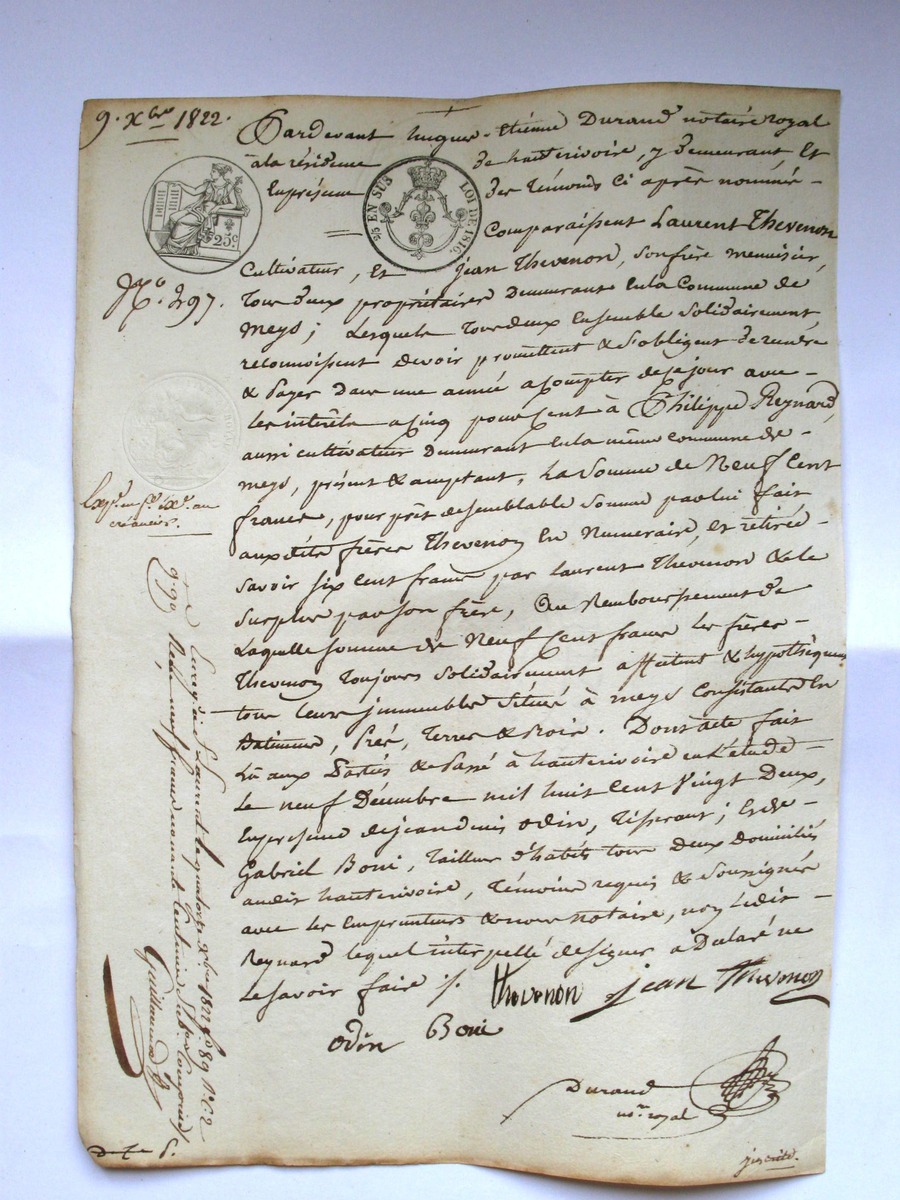 9. Xbre 1822.
Pardevant hugues-Etiénne Durand notaire royal
à la résidence de hauterivoire, y demeurant Et
En présence des témoins ci après nommés -
25c
2/5 EN SUS LOI DE 1816.
Comparaissent Laurent Thevenon
Cultivateur, Et jean Thevenon, son frère menuisier,
No. 297.
tous deux propriétaires demeurants en la Commune de
meys; Lesquels tous deux Ensemble solidairement
reconnoissent devoir promettent & s'obligent de rendre
& payer dans une année a compter de ce jour avec -
Les intérêts a cinq pour cent à Philippe Reynard,
aussi cultivateur demeurant en la même commune de -
meys, présent & acceptant, La somme de Neuf Cent
francs, pour prêt de semblable somme par lui fait
Exp. en au
créancier.
auxdits frères Thevenon En Numeraire, et retirée -
savoir six cent francs par Laurent Thevenon & le
surplus par son frère, Au Remboursement de
Laquelle somme de Neuf Cent francs les frères -
Thevenon toujours solidairement affectent & hypothèquent
tous leurs immeubles situés à meys Consistants En
Batiments, Prés, Terres & Bois. Dont acte fait
Lu aux Parties & Passé à hauterivoire en L'étude -
Le neuf Décembre mil huit cent vingt Deux,
En présence de jean denis odin, tisserant; Et de -
Gabriel Boni, tailleur d'habits tous Deux Domiciliés
audit hauterivoire, témoins requis & soussignés
avec les Emprunteurs & nous notaire, non Ledit -
Reynard lequel interpellé de signer a Déclaré ne
Le savoir faire ./.
Thevenon jean Thevenon
odin Boni
Durand
nore royal
9f 90
Enreg. à St Laurent le quatorze Xbre 1822 fo 89 Ro C 2
Reçu neuf francs nonante centimes Subon Comprise
Guillaumot